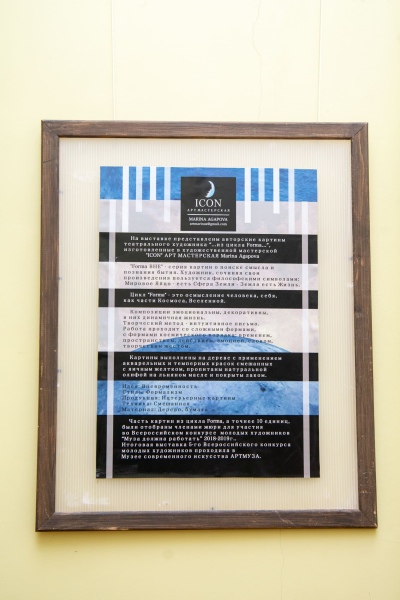 ICON
АРТ МАСТЕРСКАЯ
MARINA AGAPOVA
На выставке представлены авторские картины
театрального художника "...из цикла Forma...",
изготовленные в художественной мастерской
"ICON" АРТ МАСТЕРСКАЯ Marina Agapova
"Forma ВНЕ" - серия картин о поиске смысла и
познания бытия. Художник, сочиняя свои
произведения пользуется философскими символами:
Мировое Яйцо - есть Сфера Земли - Земля есть Жизнь.
Цикл "Forma" - это осмысление человека, себя,
как части Космоса, Вселенной.
Композиции эмоциональны, декоративны,
в них динамичная жизнь.
Творческий метод - интуитивное письмо.
Работа проходит со сложными формами,
с формами
пространством,
творческим жестом.
Картины выполнены на дереве с применением
акварельных и темперных красок смешанных
с яичным желтком, пропитаны натуральной
олифой на льняном масле и покрыты лаком.
Идея: Вневременность
Стиль: Формализм
Продукция: Интерьерные картины
Техника: Смешанная
Материал: Дерево, бумага
Часть картин из цикла Forma, а точнее 10 единиц,
были отобраны членами жюри для участия
во Всероссийском конкурсе молодых художников
"Муза должна работать" 2018-2019г..
Итоговая выставка 5-го Всероссийского конкурса
молодых художников проходила в
Музее современного искусства АРТМУЗА.